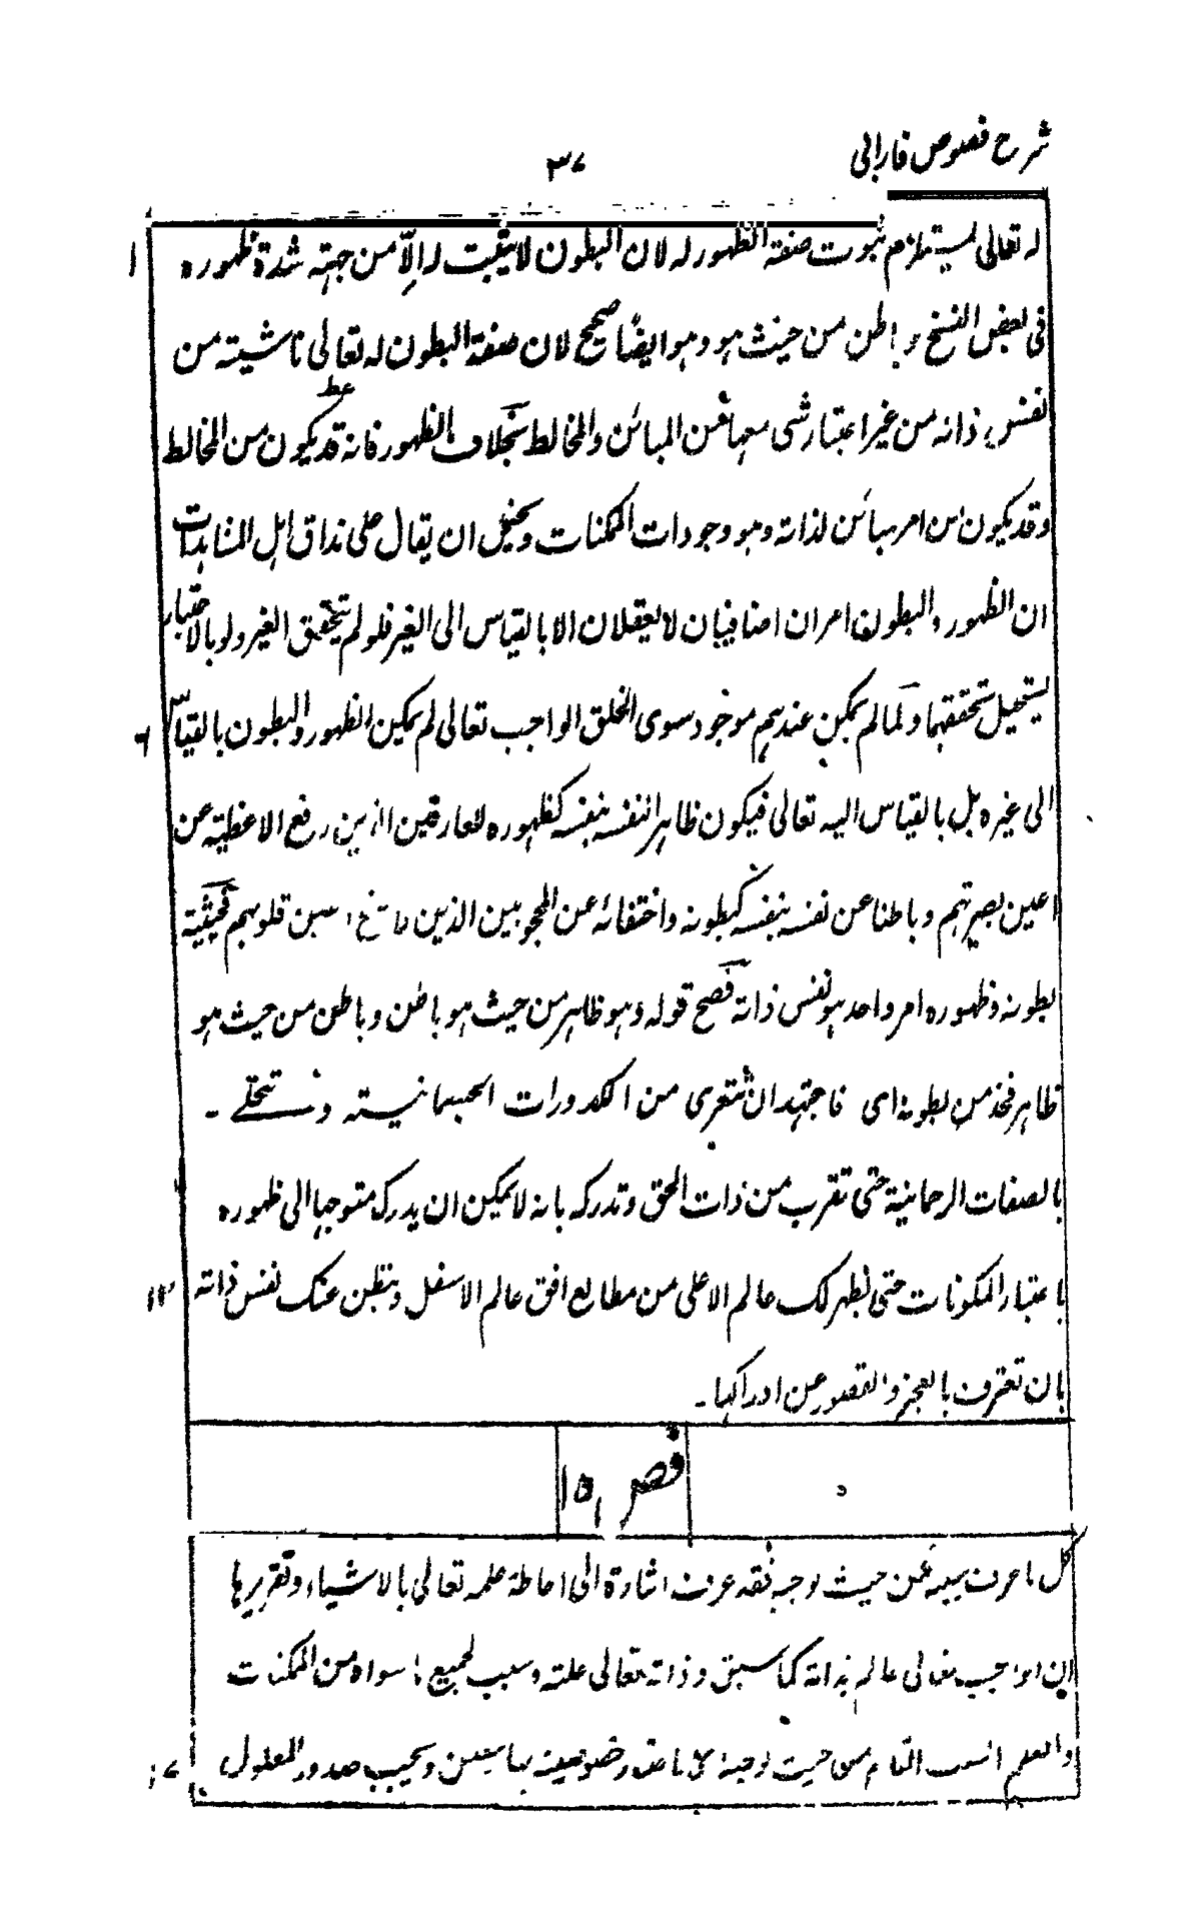 شرح فصوص فارابی
۳۷
له تعالى يستلزم ثبوت صفة الظهور له لان البطون لا يثبت له الّا من جهته شدة ظهوره
۱
فى بعض النسخ و باطن من حيث هو وهو ايضًا صحيح لان صفة البطون له تعالى ناشيته من
نفس ذاته من غير اعتبار شى معها من المبائن والمخالط بخلاف الظهور فانه قد يكون من المخالط
وقد يكون من امر مبائن لذاته وهو وجودات الممكنات ويحتمل ان يقال على مذاق اهل المشاهدات
ان الظهور والبطون امران اضافيان لا يعقلان الا بالقياس الى الغير فلو لم يتحقق الغير ولو بالاعتبار
يستحيل تحققهما ولما لم يكن عندهم موجود سوى الخلق الواجب تعالى لم يمكن الظهور والبطون بالقياس
۶
الى غيره بل بالقياس اليه تعالى فيكون ظاهرا لنفسه بنفسه كظهوره للعارفين الذين رفع الاغطية عن
اعين بصيرتهم وباطنا عن نفسه بنفسه كبطونه واختفائه عن المحجوبين الذين قلوبهم فحيثية
بطونه وظهوره امر واحد هو نفس ذاته فصح قوله وهو ظاهر من حيث هو باطن وباطن من حيث هو
ظاهر فخذ من بطونه اى فاجتهد ان تتعرى من الكدورات الجسمانيته وتتحلے ۔
بالصفات الرحمانية حتى تقرب من ذات الحق وتدركه بانه لا يمكن ان يدرك متوجها الى ظهوره
باعتبار المكونات حتى يظهر لك عالم الاعلى من مطالع افق عالم الاسفل ويبطن عنك نفس ذاته
۱۲
بان تعترف بالعجز والقصور عن ادراكها ۔
فصر ۱۵
كل ما عرف سببه من حيث يوجبه فقد عرف اشارة الى احاطة علمه تعالى بالاشياء وتقريرها
ان الواجب تعالى عالم بذاته كما سبق وذاته تعالى علته وسبب لجميع ما سواه من الممكنات
والعلم التام من حيث يوجبه لان ما عقد وخصوصيته بها يتعين ويجب صدور المعلول